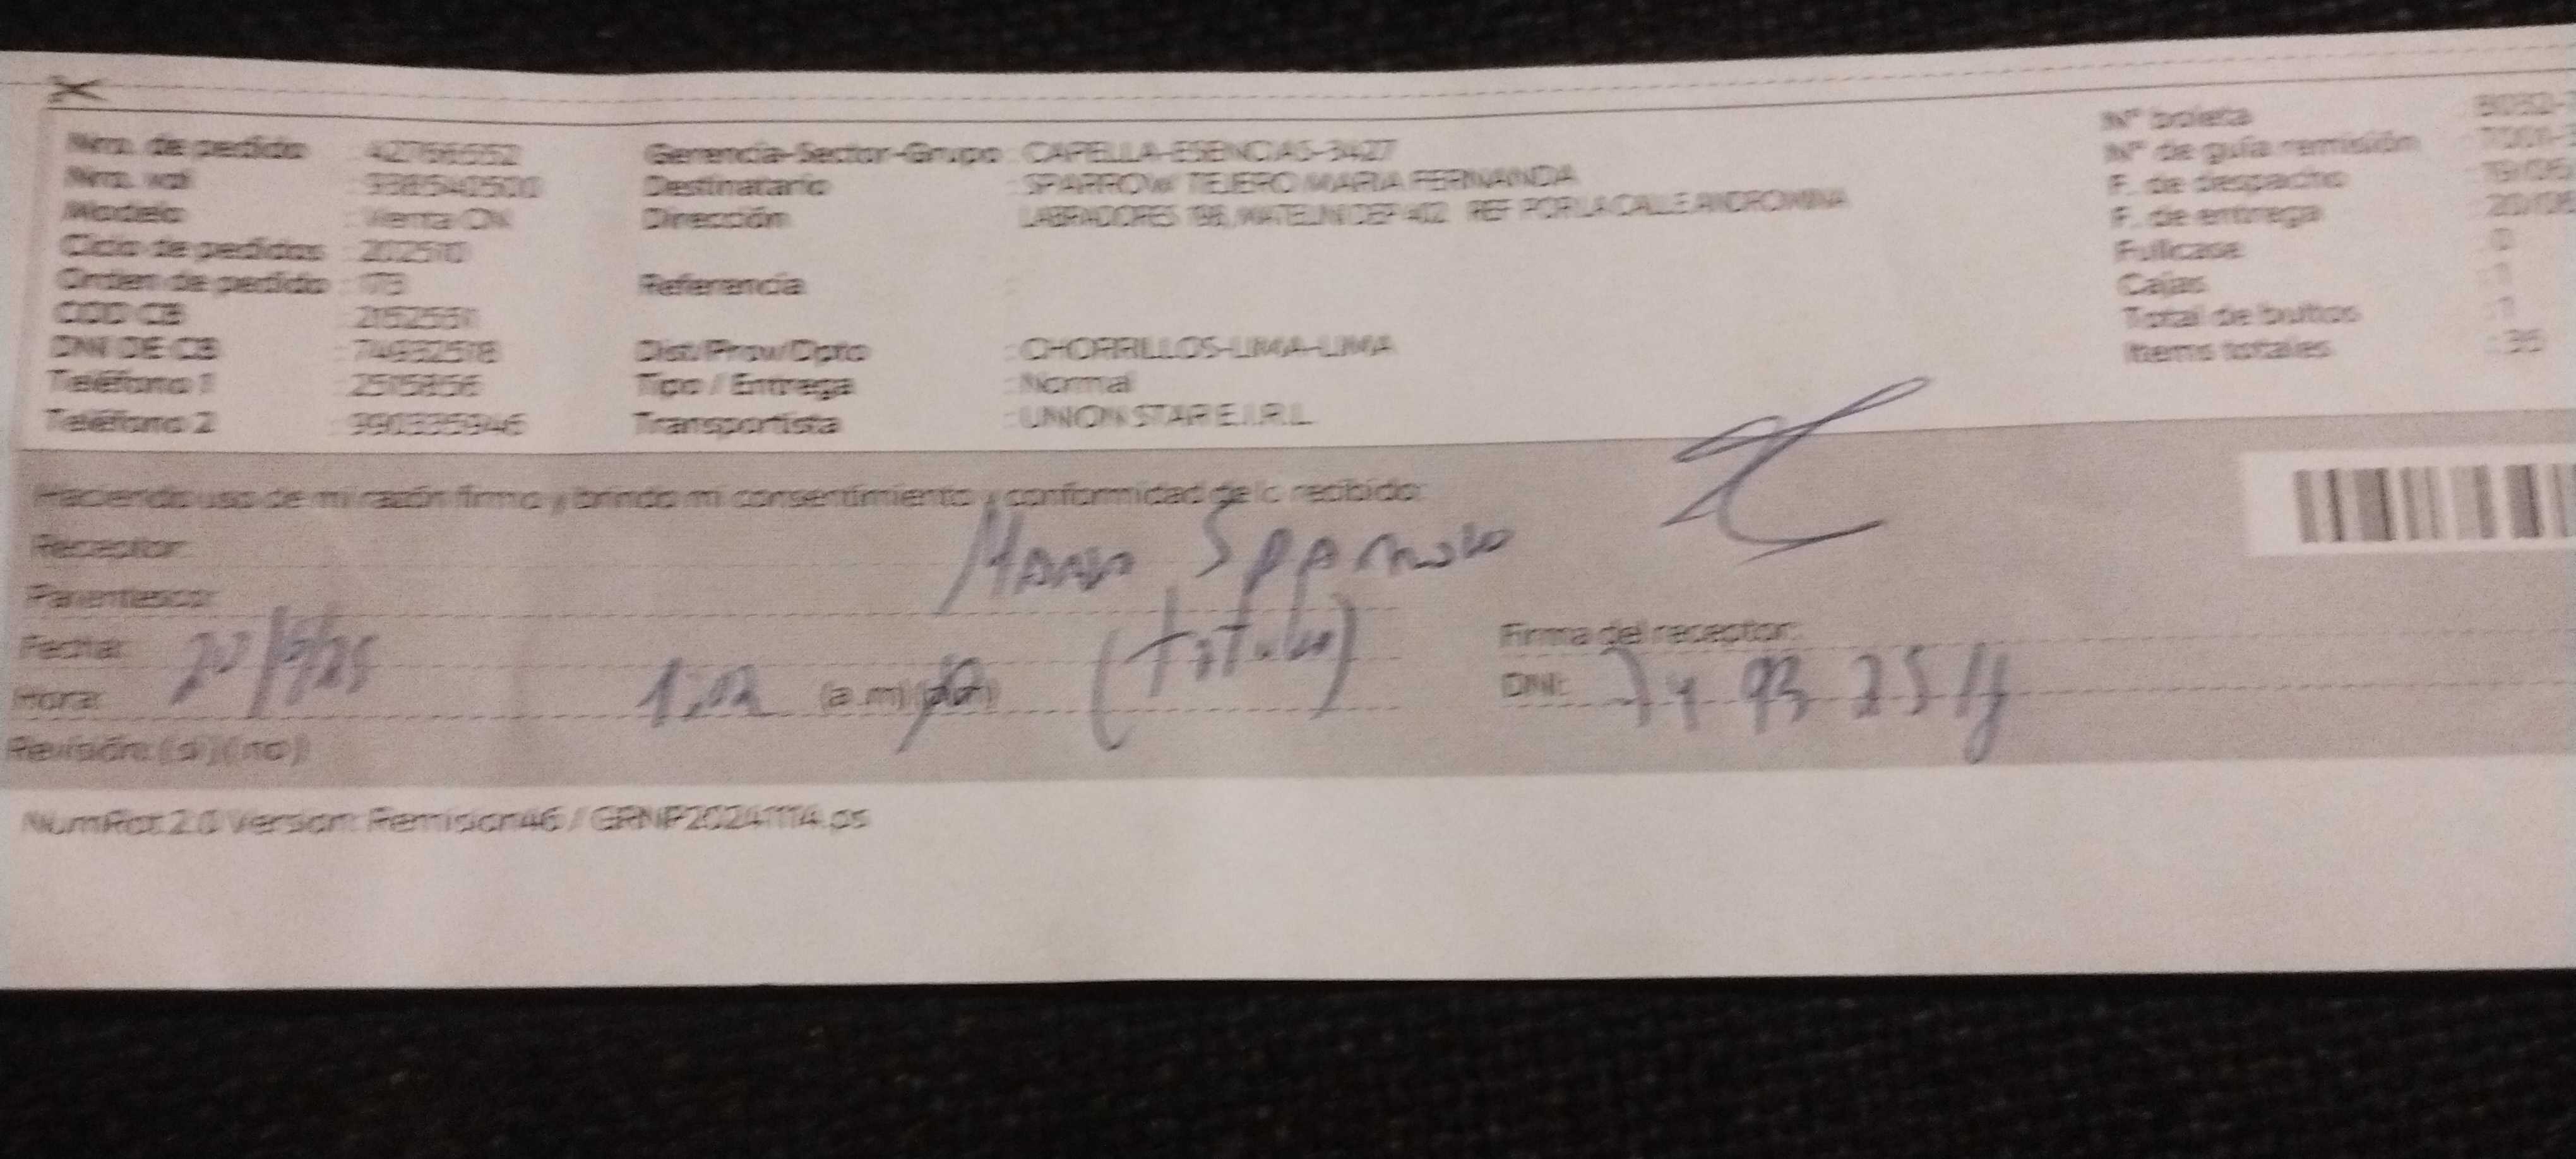 Nro. de pedido : 427766552
Nro. vol : 9385540500
Modelo : Venta CN
Ciclo de pedidos : 202510
Orden de pedido : 173
COD CB : 2152551
DNI DE CB : 74932518
Teléfono 1 : 2515856
Teléfono 2 : 990335946
Gerencia-Sector-Grupo : CAPELLA-ESENCIAS-3427
Destinatario : SPARROW TEJERO MARIA FERNANDA
Dirección : LABRADORES 198, MATELINI DEP 402 REF POR LA CALLE ANDROMINA
Referencia :
Dist/Prov/Dpto : CHORRILLOS-LIMA-LIMA
Tipo / Entrega : Normal
Transportista : UNION STAR E.I.R.L.
N° boleta
N° de guía remisión
F. de despacho
F. de entrega
Fullcase : 0
Cajas : 1
Total de bultos : 1
Items totales : 36
Haciendo uso de mi razón firmo y brindo mi consentimiento y conformidad de lo recibido:
Receptor: Sparrow
Parentesco: (titular)
Fecha:
Hora: (a.m)
Firma del receptor:
DNI:
Revisión: (si) (no)
NumRot 2.0 Version: Remision46 / GRNP20241114.ps